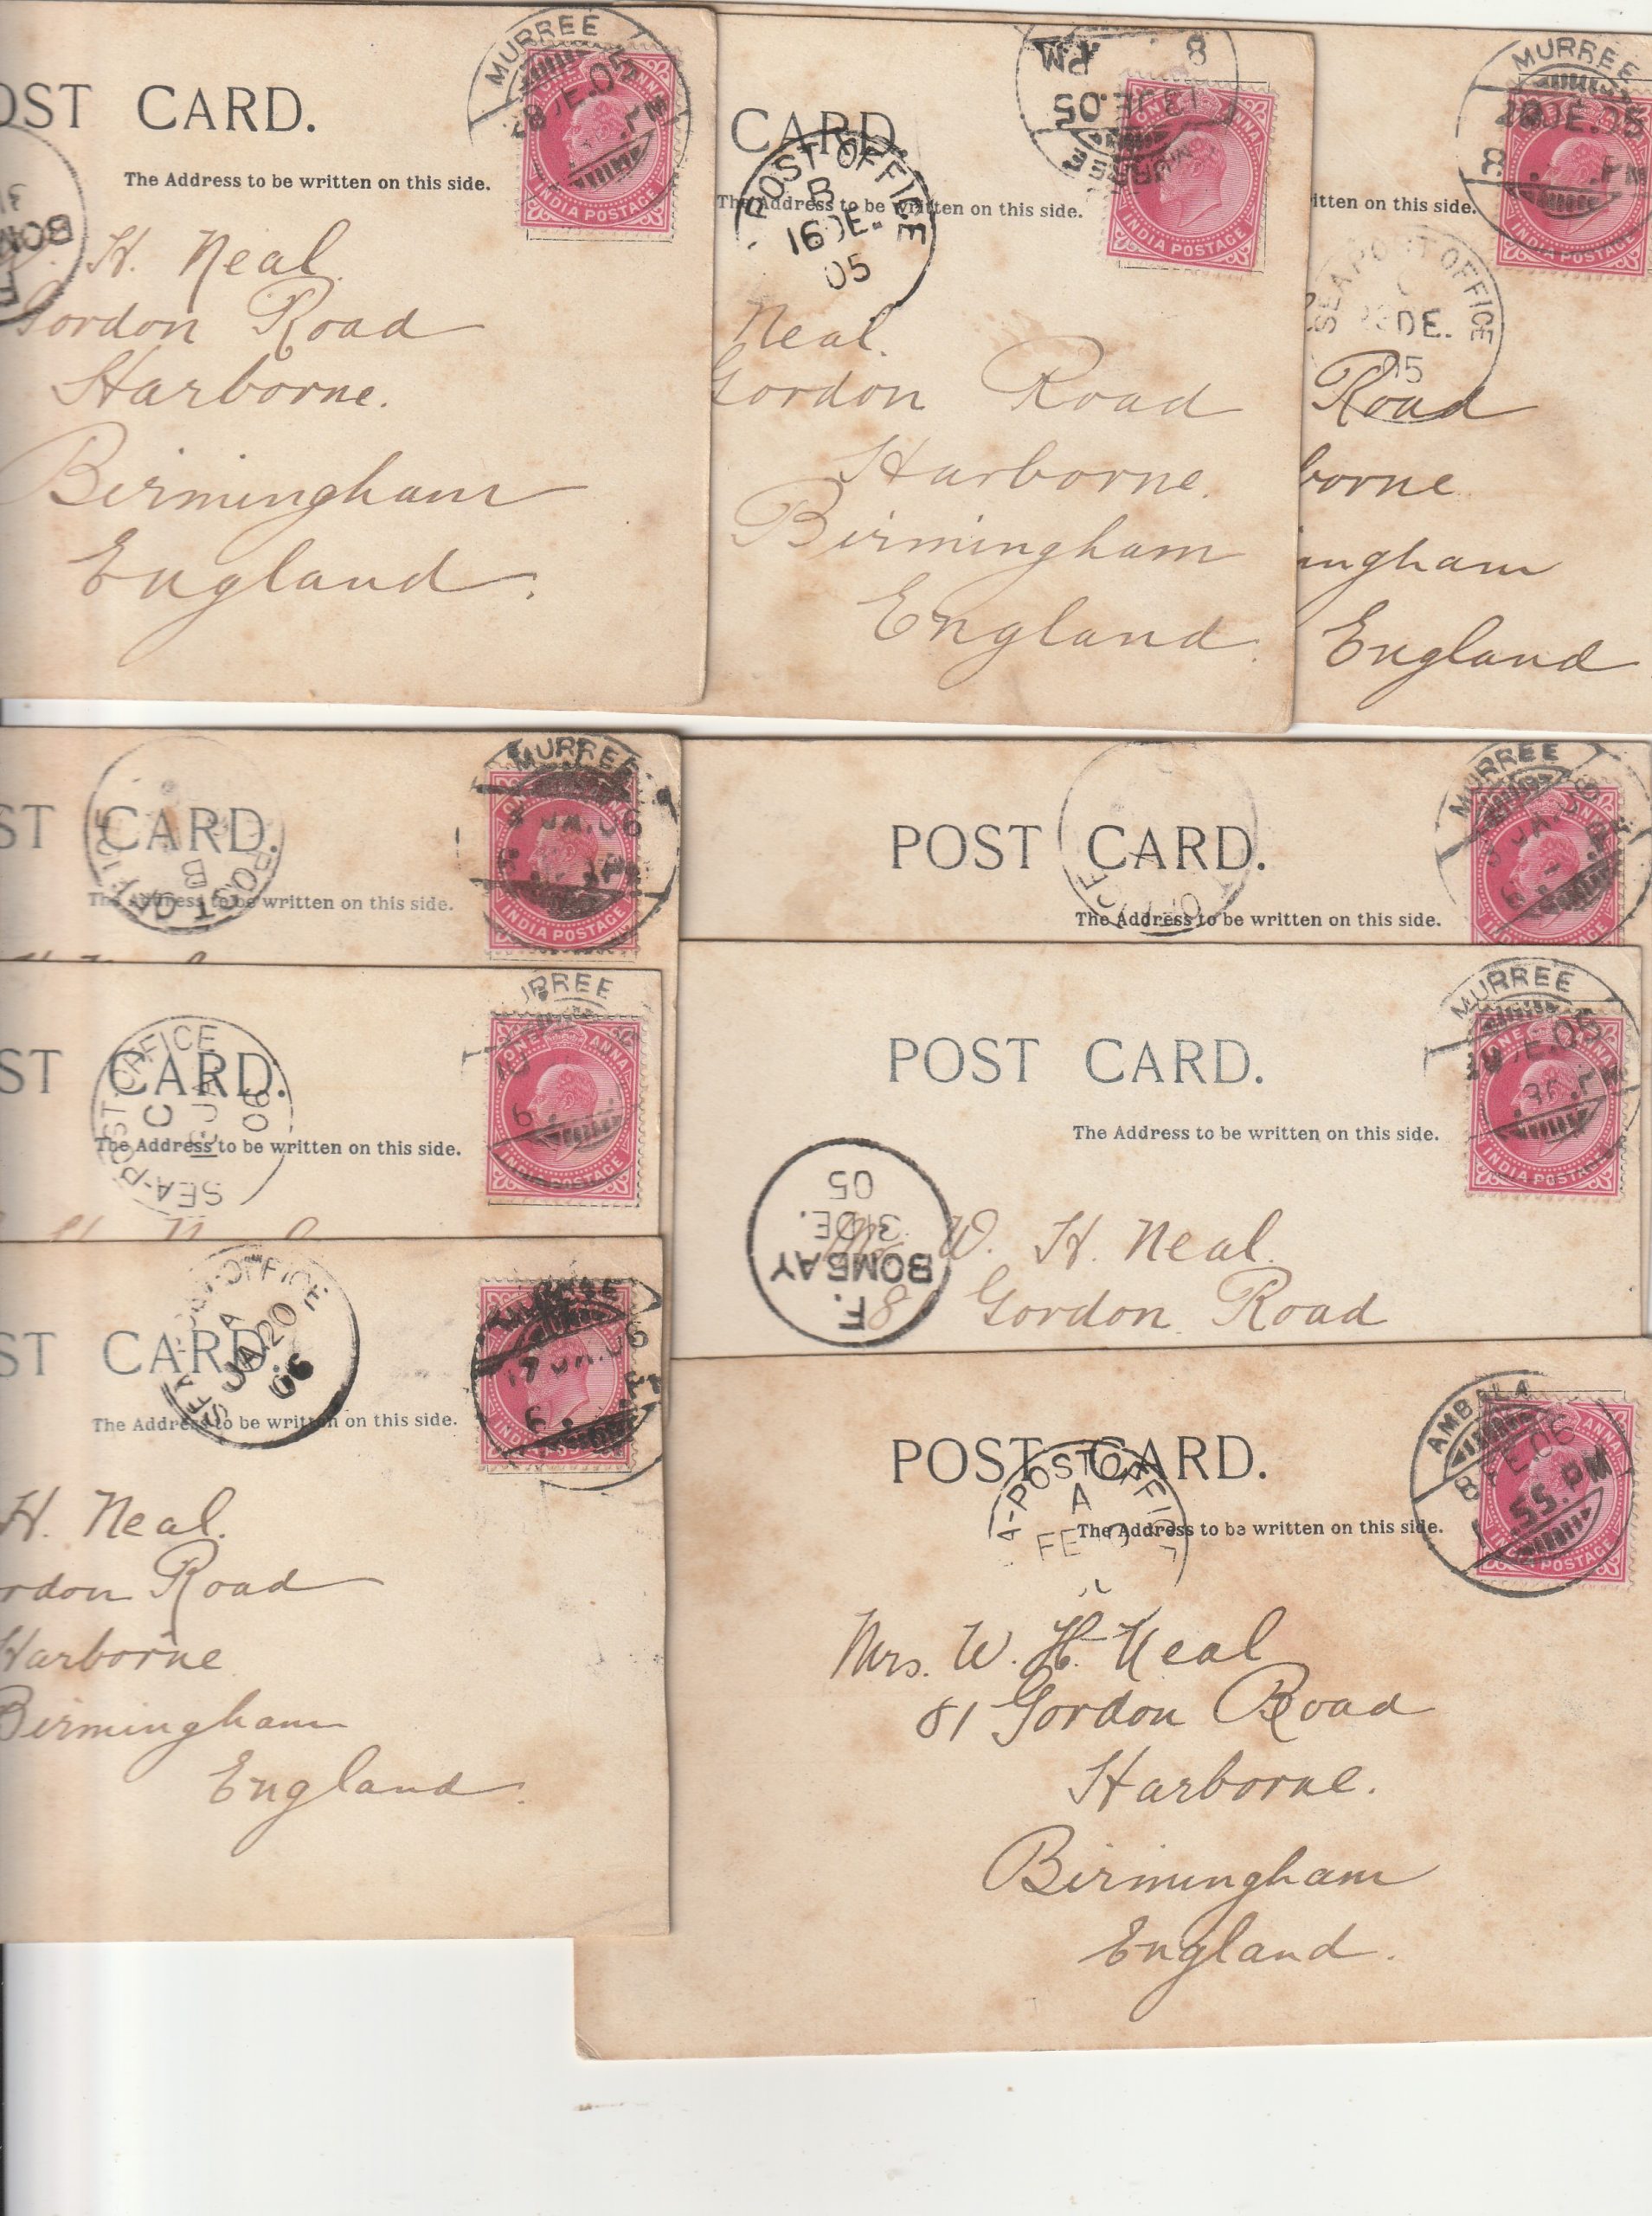 MURREE
28 DE.05
PM
ONE ANNA
INDIA POSTAGE
OST CARD.
The Address to be written on this side.
BOM
H. Neal.
Gordon Road
Harborne.
Birmingham
England.
8 PM
13 DE.05
MURREE
ONE ANNA
INDIA POSTAGE
CARD.
POST OFFICE
B
16 DE.
05
The Address to be written on this side.
Neal.
Gordon Road
Harborne.
Birmingham
England.
MURREE
20 DE.05
8 PM
INDIA POSTAGE
itten on this side.
SEA POST OFFICE
DE.
05
Road
borne
ingham
England
MURREE
JA.06
INDIA POSTAGE
ST CARD.
POST OFFICE
B
The Address to be written on this side.
MURREE
JA
POST CARD.
The Address to be written on this side.
ONE ANNA
INDIA POSTAGE
ST CARD.
SEA-POST OFFICE
C
JA
06
The Address to be written on this side.
MURREE
DE.05
ONE ANNA
INDIA POSTAGE
POST CARD.
The Address to be written on this side.
F.
BOMBAY
31 DE.
05
W. H. Neal.
8 Gordon Road
17 JA.06
6
ST CARD.
SEA-POST-OFFICE
A
JA 20
06
The Address to be written on this side.
H. Neal.
rdon Road
Harborne
Birmingham
England.
AMBALA
8 FE.06
55.PM
ANNA
INDIA POSTAGE
POST CARD.
A-POST OFFICE
A
FE 10
The Address to be written on this side.
Mrs. W. H. Neal
81 Gordon Road
Harborne.
Birmingham
England.